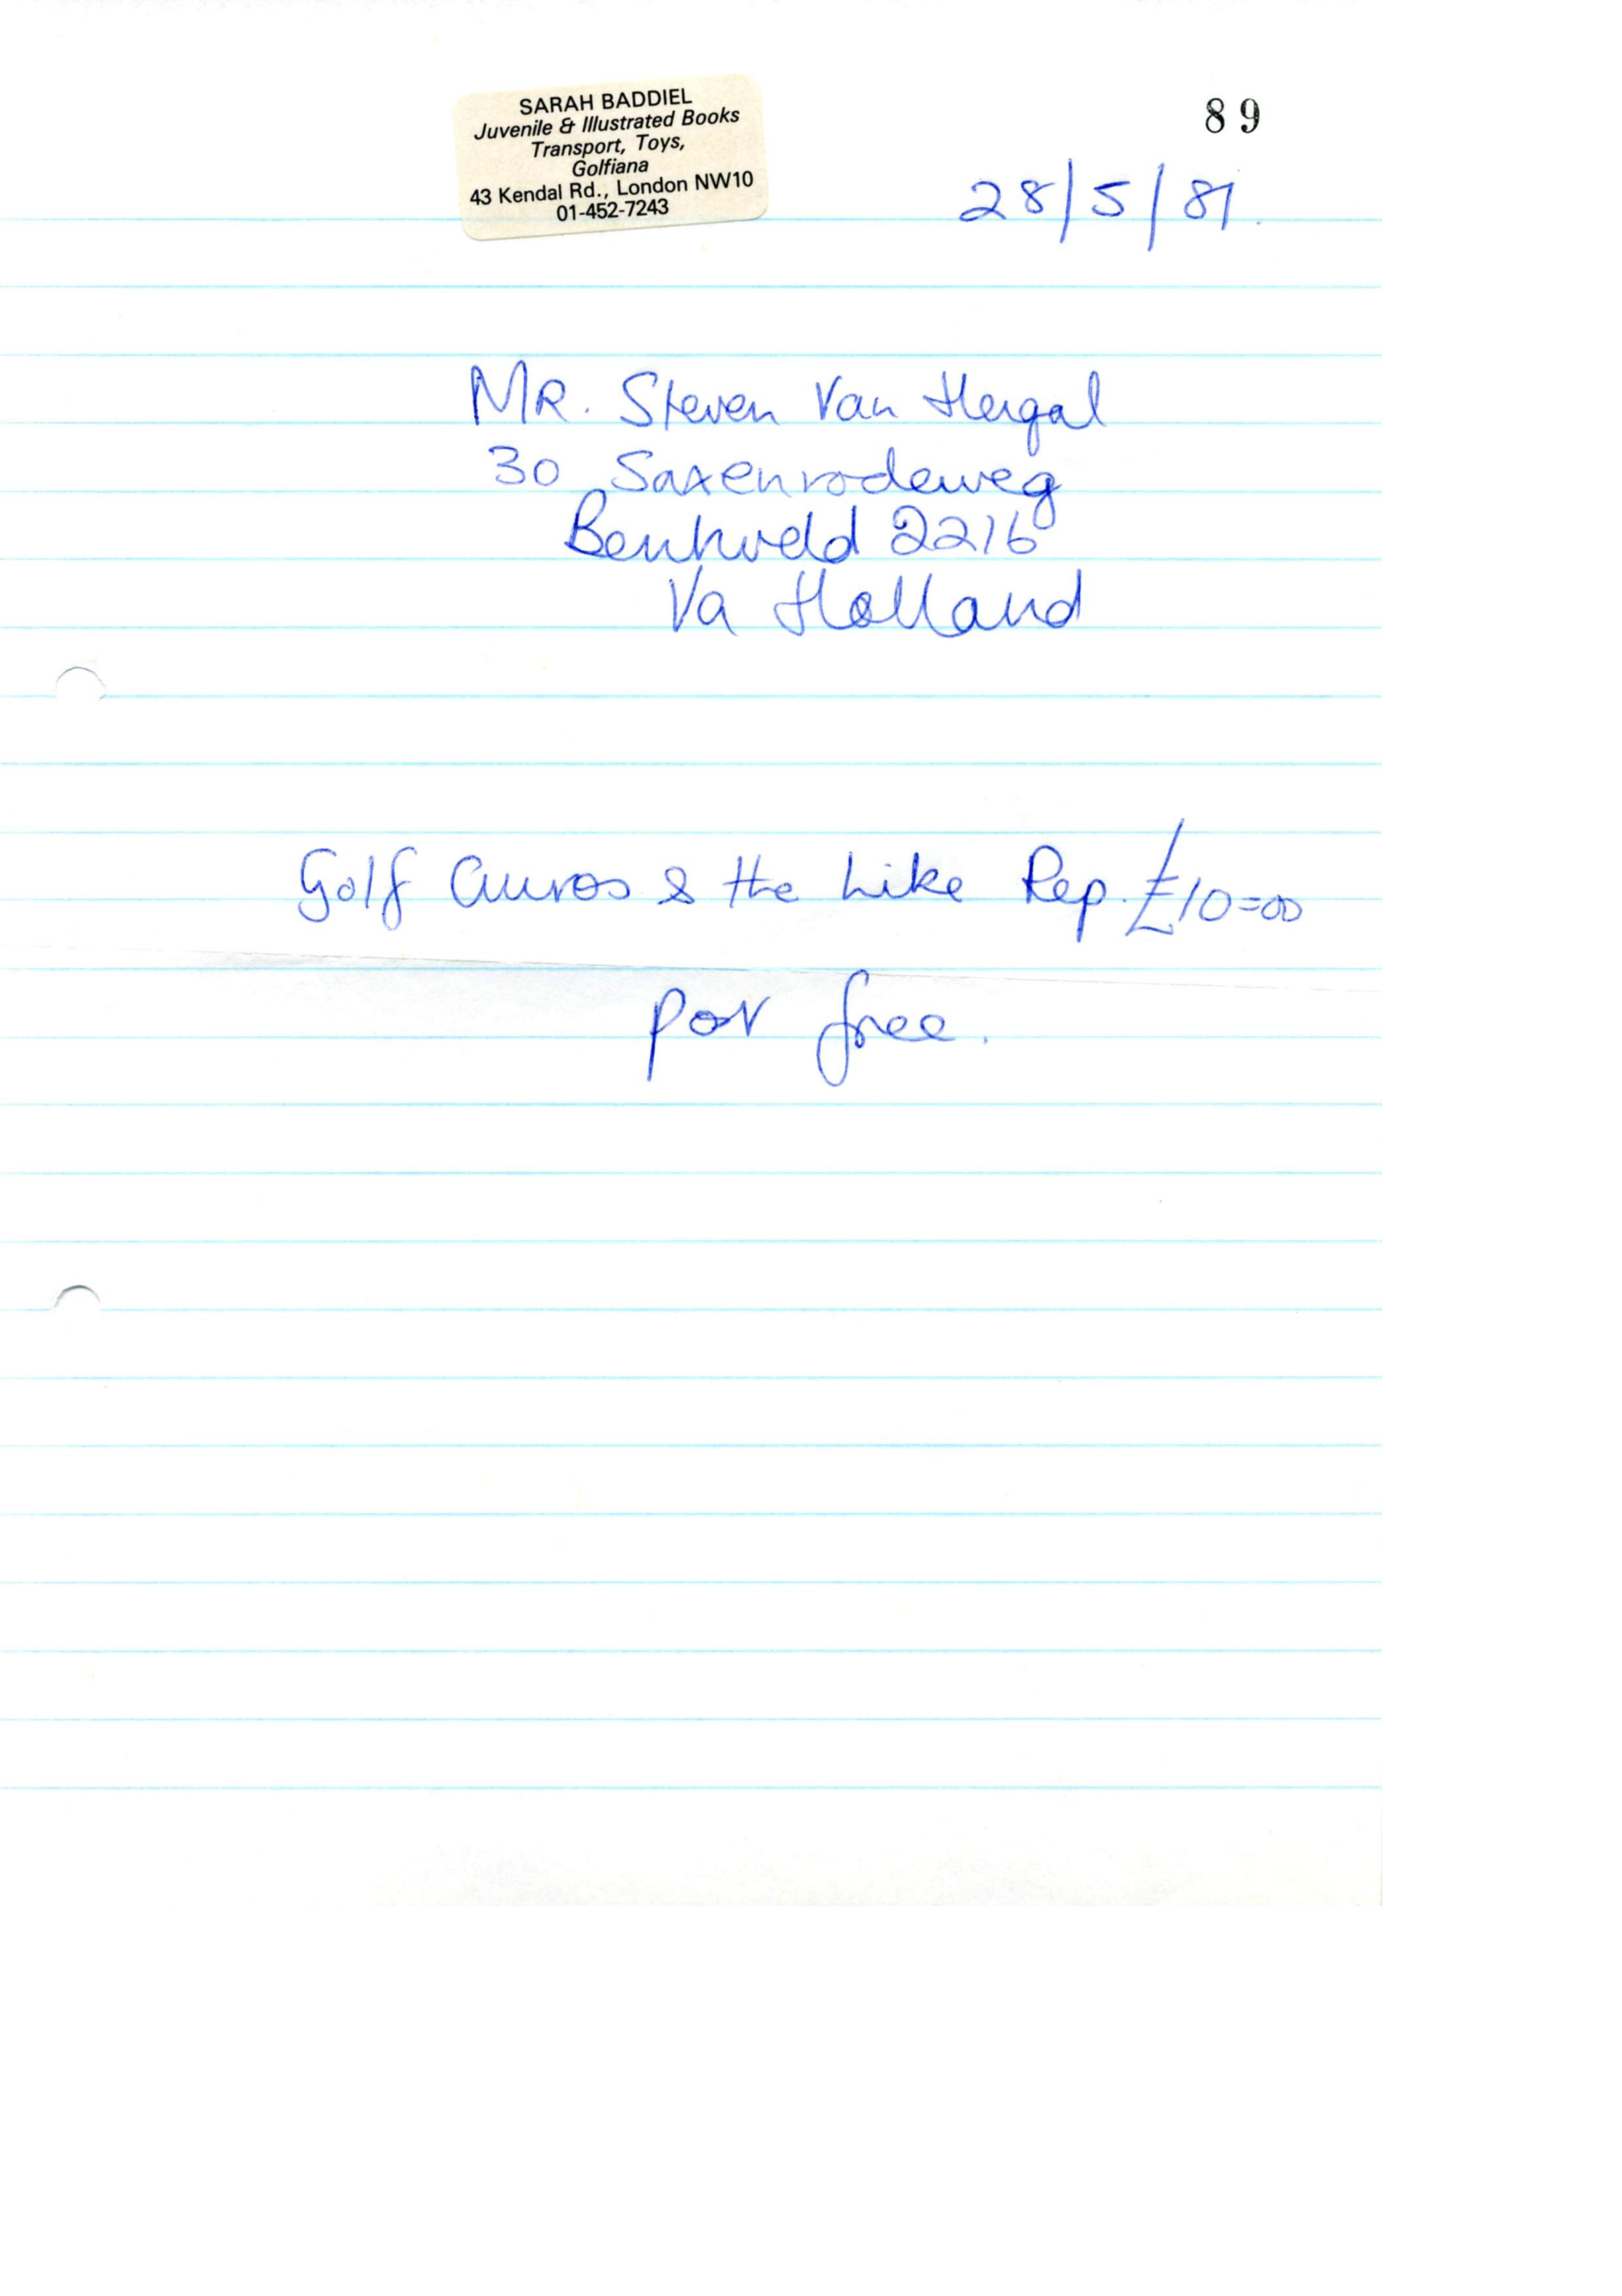 SARAH BADDIEL
Juvenile & Illustrated Books
Transport, Toys,
Golfiana
43 Kendal Rd., London NW10
01-452-7243
89
28/5/81.
MR. Steven Van Hengal
30 Saxenrodeweg
Bentveld 2216
Va Holland
Golf Curios & the Like Rep. £10=00
post free.